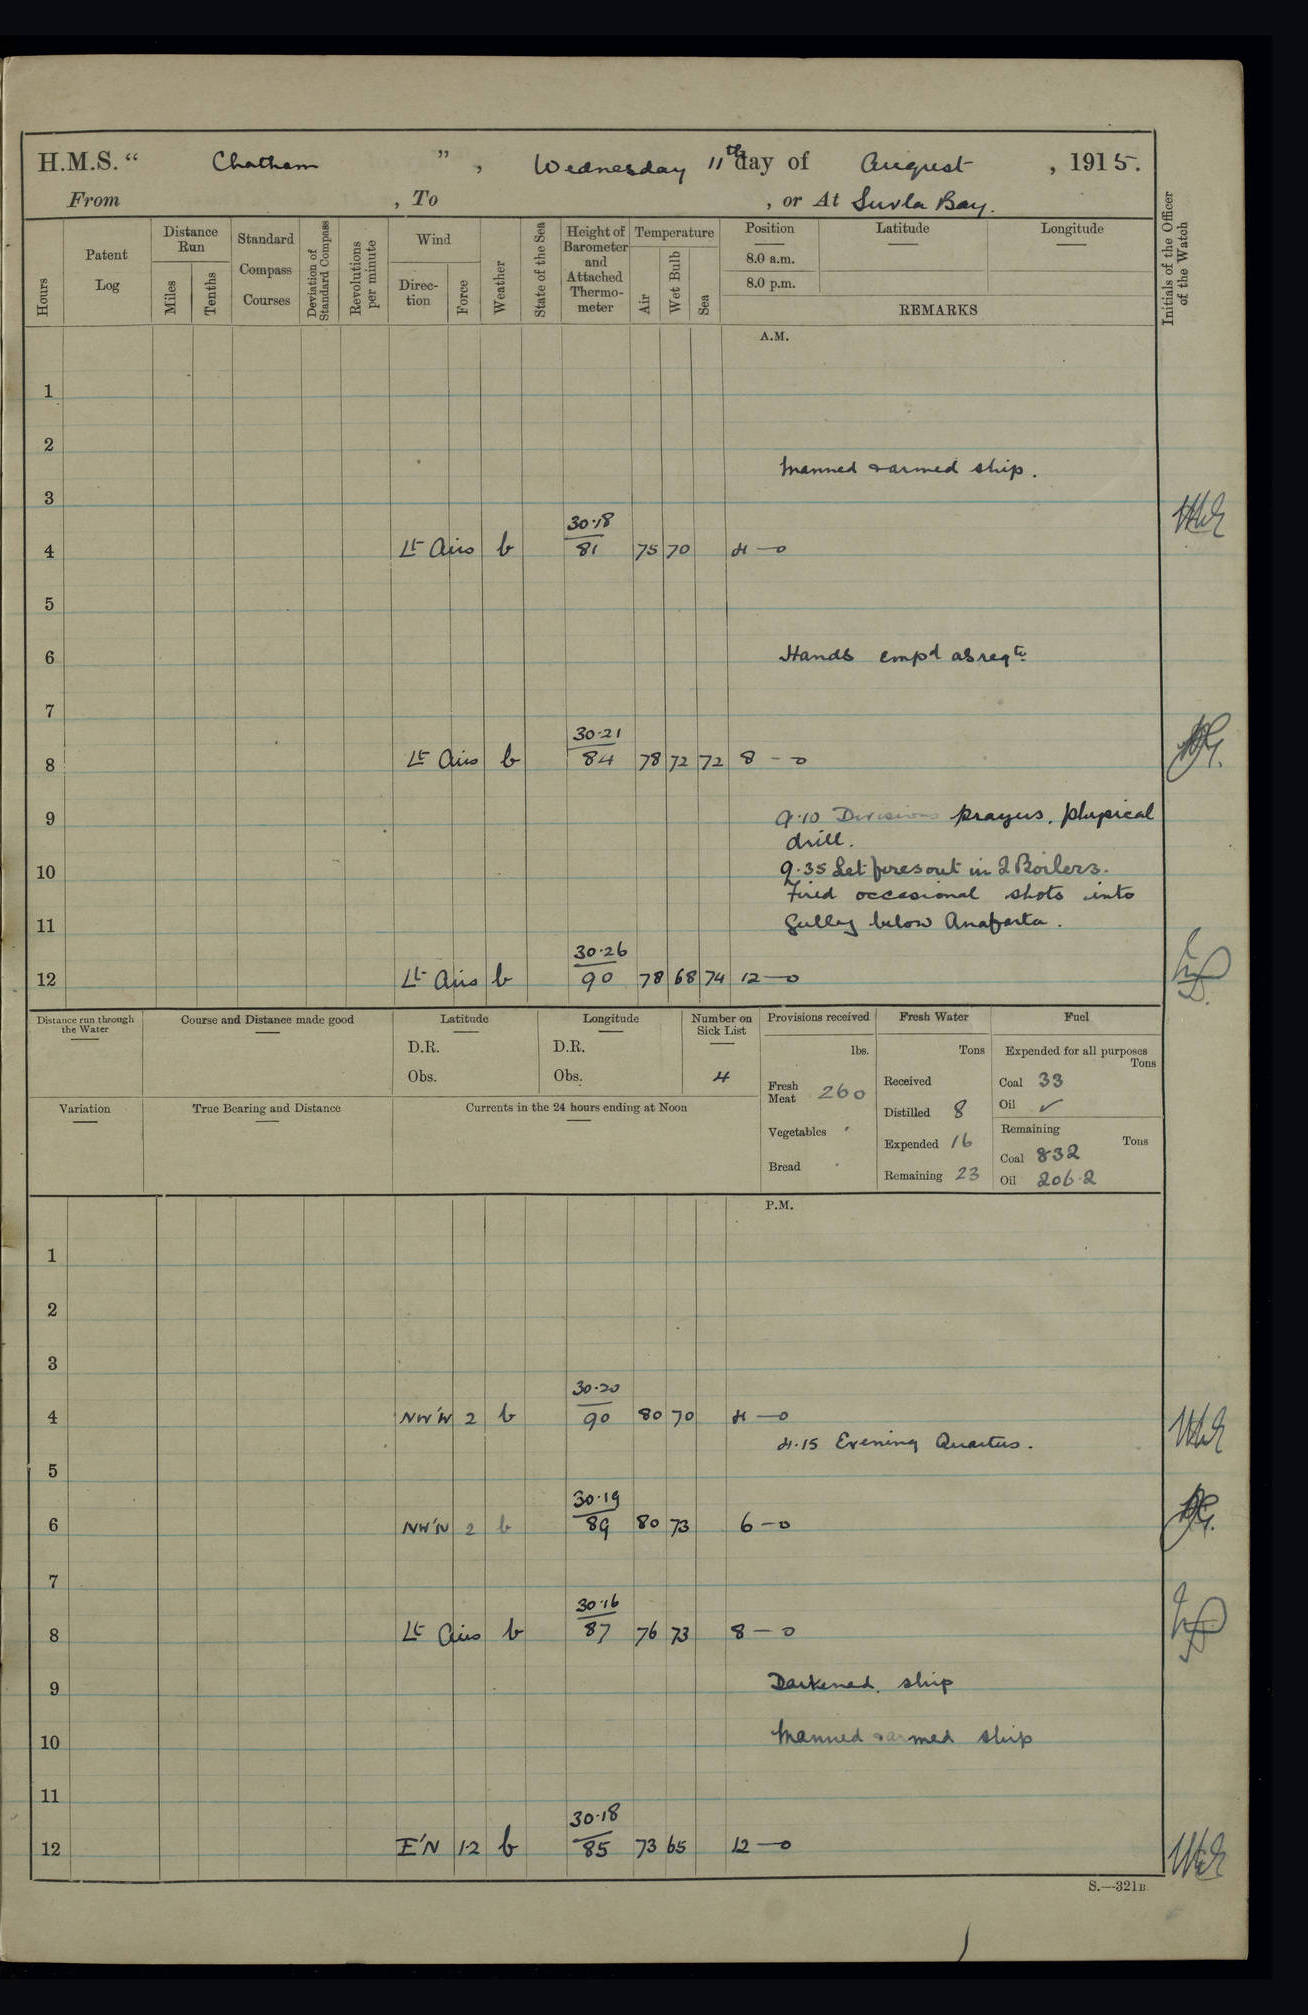 H.M.S. “ Chatham ” , Wednesday 11th day of August , 1915.
From , To , or At Suvla Bay.
Hours
Patent Log
Distance Run
Miles
Tenths
Standard Compass Courses
Deviation of Standard Compass
Revolutions per minute
Wind
Direction
Force
Weather
State of the Sea
Height of Barometer and Attached Thermometer
Temperature
Air
Wet Bulb
Sea
Position
8.0 a.m.
8.0 p.m.
Latitude
Longitude
REMARKS
Initials of the Officer of the Watch
A.M.
1
2
Manned & armed ship.
3
30·18
4 Lt Airs b 81 75 70 4—0
5
6 Hands empd as reqte
7
30·21
8 Lt Airs b 84 78 72 72 8 - 0
9 9·10 Divisions prayers, physical
drill.
10 9·35 Let fires out in 2 Boilers.
Fired occasional shots into
11 Gulley below Anafarta.
30·26
12 Lt Airs b 90 78 68 74 12—0
Distance run through the Water
Course and Distance made good
Latitude
D.R.
Obs.
Longitude
D.R.
Obs.
Number on Sick List
4
Provisions received
lbs.
Fresh Meat 260
Vegetables
Bread
Fresh Water
Tons
Received
Distilled 8
Expended 16
Remaining 23
Fuel
Expended for all purposes
Tons
Coal 33
Oil ✓
Remaining
Tons
Coal 832
Oil 206·2
Variation
True Bearing and Distance
Currents in the 24 hours ending at Noon
P.M.
1
2
3
30·20
4 NW'W 2 b 90 80 70 4—0
4·15 Evening Quarters.
5
30·19
6 NW'N 2 b 89 80 73 6—0
7
30·16
8 Lt Airs b 87 76 73 8—0
9 Darkened ship
10 Manned & armed ship
11
30·18
12 E'N 1·2 b 85 73 65 12—0
S.—321B